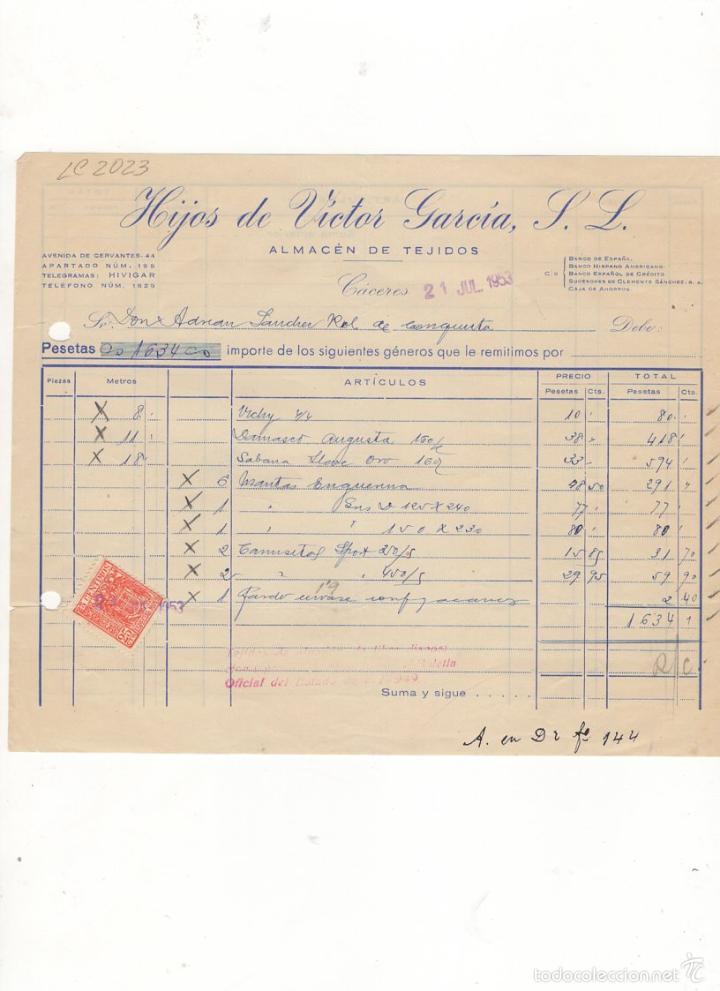 LC 2023
Hijos de Víctor García, S. L.
ALMACÉN DE TEJIDOS
AVENIDA DE CERVANTES-44
APARTADO NÚM. 195
TELEGRAMAS: HIVIGAR
TELÉFONO NÚM. 1625
C/C
BANCO DE ESPAÑA.
BANCO HISPANO AMERICANO
BANCO ESPAÑOL DE CRÉDITO
SUCESORES DE CLEMENTE SÁNCHEZ, S. A.
CAJA DE AHORROS
Cáceres 21 JUL. 1953
Sr. Don Adrian Sanchez Rol de conquista Debe:
Pesetas 1634 importe de los siguientes géneros que le remitimos por
Piezas Metros ARTÍCULOS PRECIO TOTAL
Pesetas Cts. Pesetas Cts.
X 8 Vichy 4/4 10 80
X 11 Damasco Augusta 160/c 38 418
X 18 Sabana Oro 160 33 594
X 6 Mantas 48 50 291
X 1 " 125 X 240 77 77
X 1 " " 150 X 230 80 80
X 2 Camisetas Spot 250/5 15 85 31 70
X 2 " " 450/5 29 95 59 90
X 1 Fardo envase 2 40
1634
R/C
Oficial del Estado de
Suma y sigue . . . . .
A. en D2 fº 144
5 CENTIMOS
todocoleccion.net